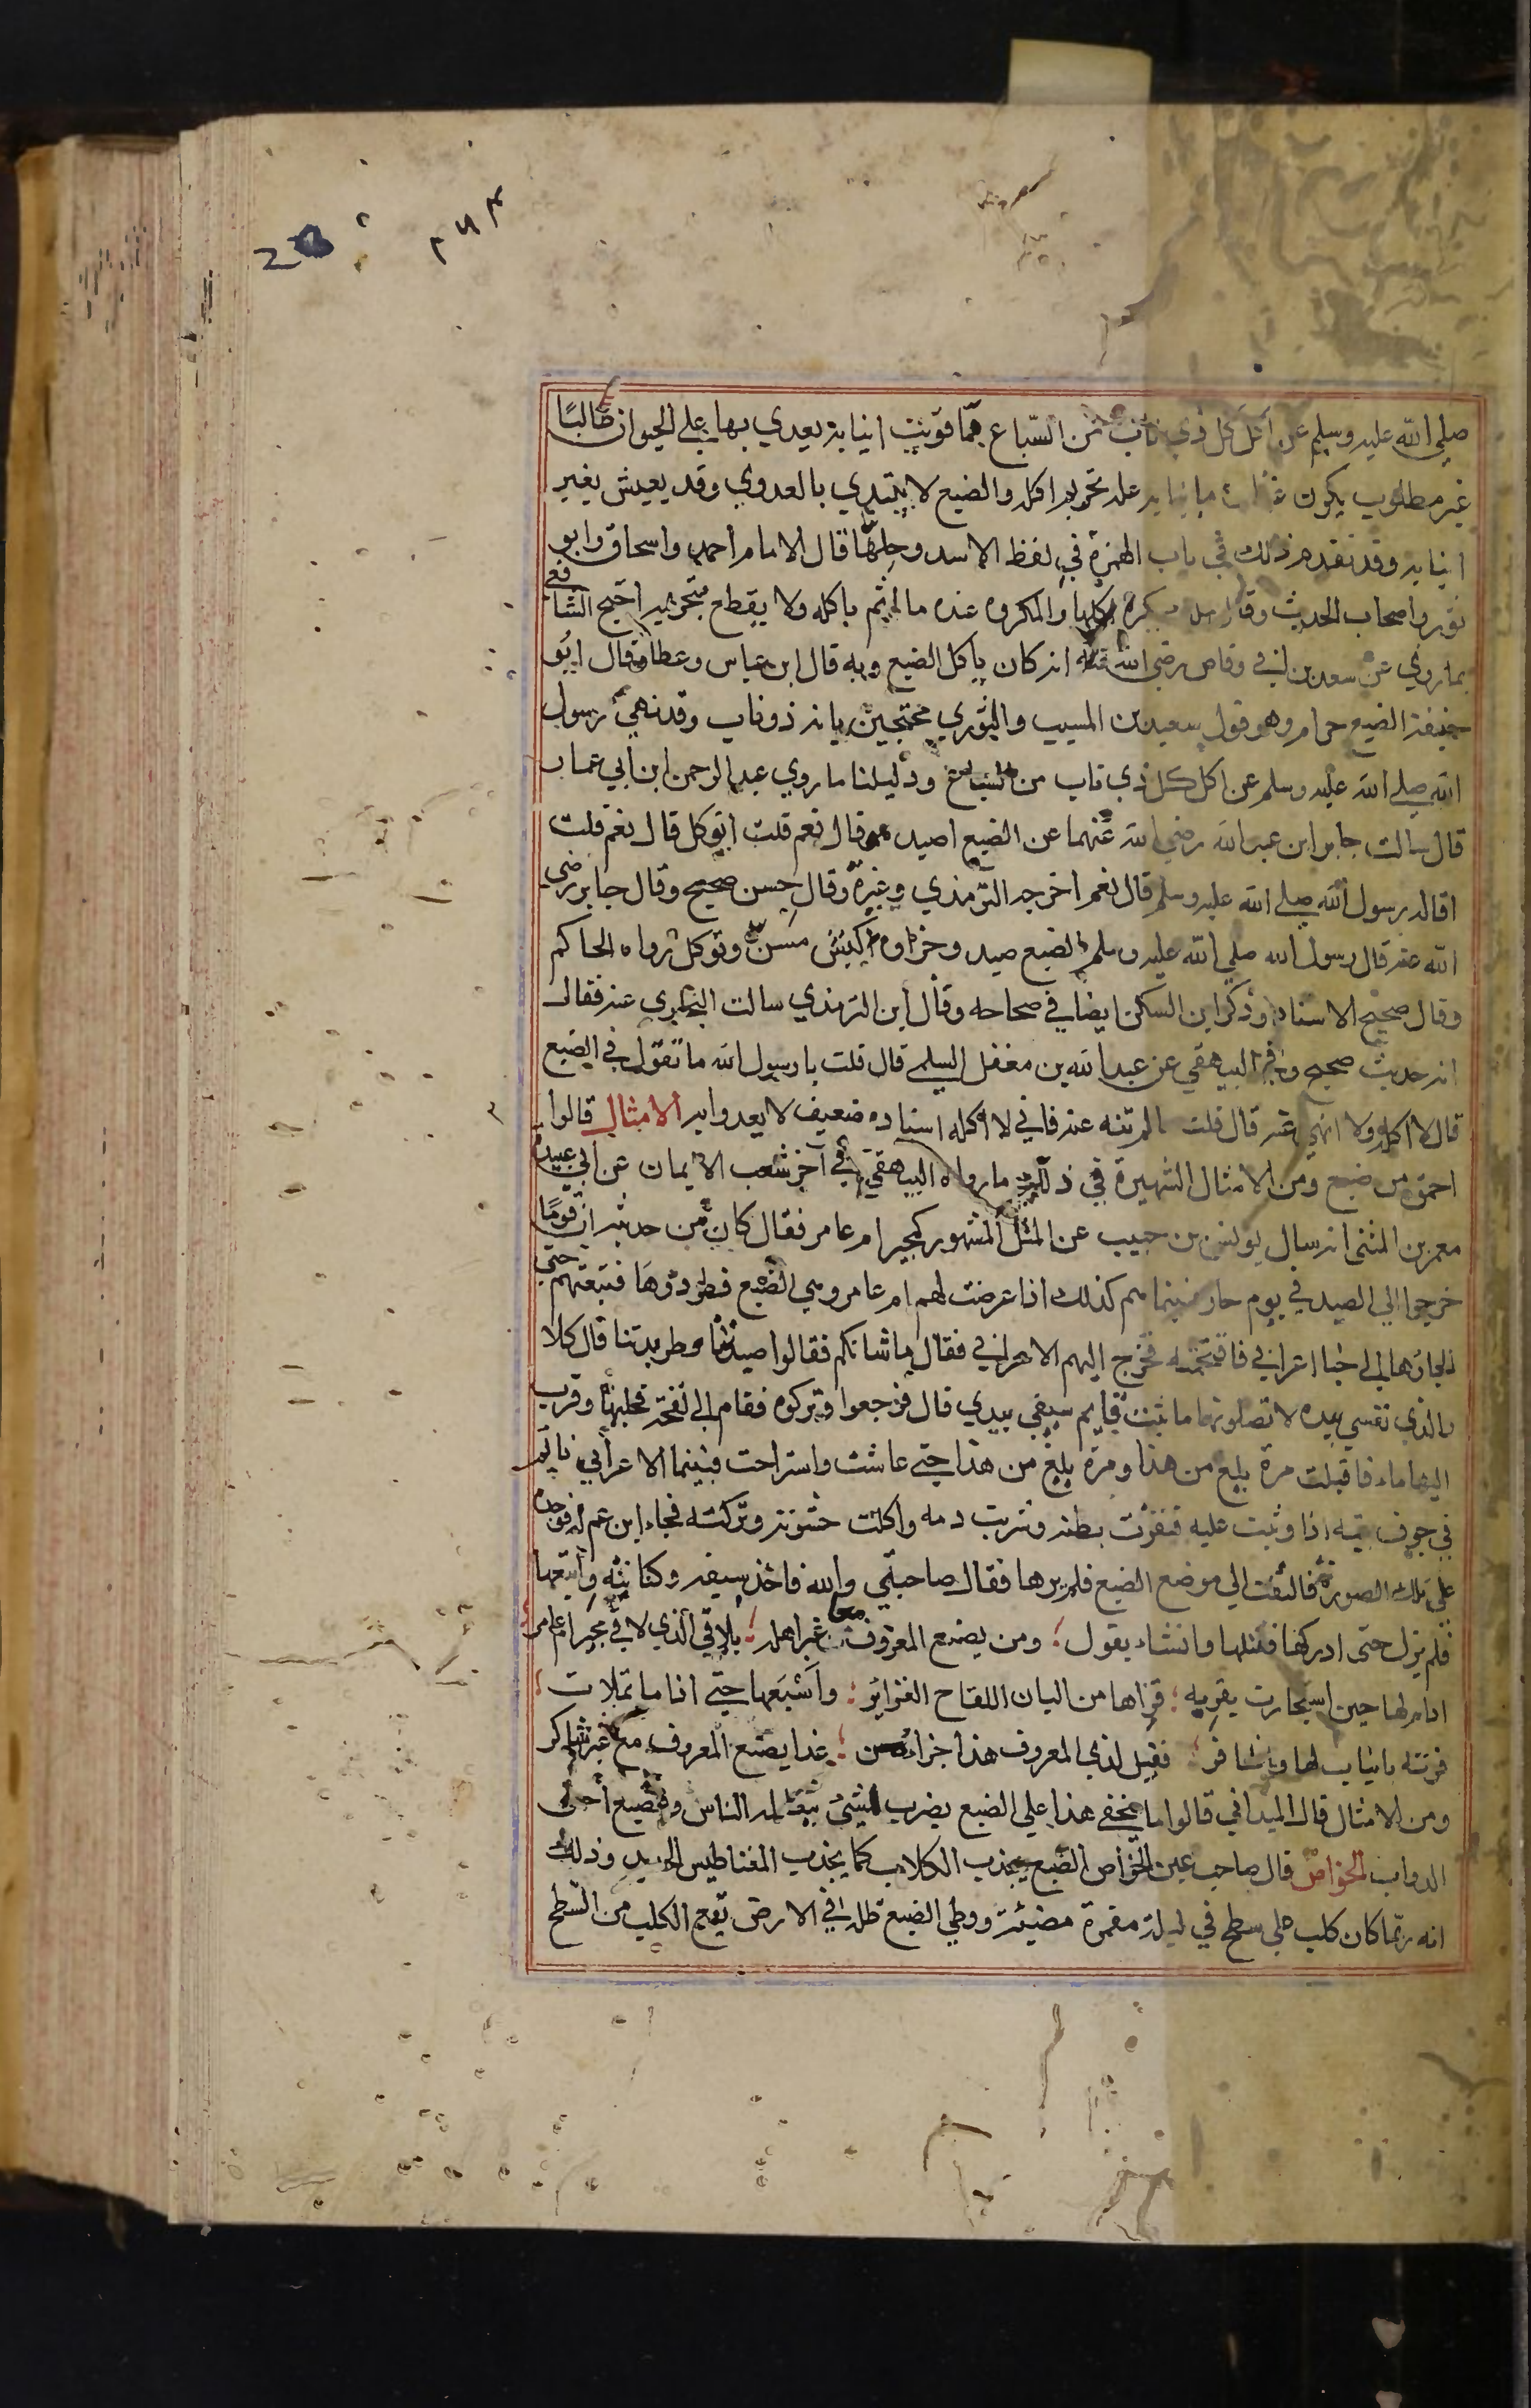 ٢٧٣
صلى الله عليه وسلم عن اكل كل ذي ناب من السباع فما قويت انيابه يعدي بها على الحيوان طالبًا
غير مطلوب يكون بانيابه علة تحريم اكله والضبع لا يبتدي بالعدوي وقد يعيش بغير
انيابه وقد تقدم ذلك في باب الهمزة في لفظ الاسد وحلها قال الامام احمد واسحاق وابو
ثور واصحاب الحديث وقال يكره اكلها والمكروه عنده ما اثم باكله ولا يقطع بتحريمه احتج الشافعي
بما روي عن سعد بن ابي وقاص رضي الله عنه انه كان ياكل الضبع وبه قال ابن عباس وعطا وقال ابو
حنيفة الضبع حرام وهو قول سعيد بن المسيب والثوري محتجين بانه ذو ناب وقد نهي رسول
الله صلى الله عليه وسلم عن اكل كل ذي ناب من السباع ودليلنا ما روي عبد الرحمن ابن ابي عمار
قال سالت جابر ابن عبد الله رضي الله عنهما عن الضبع اصيد هو قال نعم قلت اتوكل قال نعم قلت
اقاله رسول الله صلى الله عليه وسلم قال نعم اخرجه الترمذي وغيره وقال حسن صحيح وقال جابر رضي
الله عنه قال رسول الله صلى الله عليه وسلم الضبع صيد وجزاوه كبش مسن وتوكل رواه الحاكم
وقال صحيح الاسناد وذكر ابن السكن ايضا في صحاحه وقال ابن الترمذي سالت البخاري عنه فقال
انه حديث صحيح وفي البيهقي عن عبد الله بن مغفل السلمي قال قلت يا رسول الله ما تقول في الضبع
قال لا اكله ولا انهي عنه قال قلت ما لم تنه عنه فاني لا اكله اسناده ضعيف لا يعدوا به الامثال قالوا
احمق من ضبع ومن الامثال الشهيرة في ذلك ما رواه البيهقي في آخر شعب الايمان عن ابي عبيدة
معمر بن المثنى انه سال يونس بن حبيب عن المثل المشهور كمجير ام عامر فقال كان من حديثه ان قومًا
خرجوا الى الصيد في يوم حار فبينما هم كذلك اذا عرضت لهم ام عامر وهي الضبع فطردوها فتبعتهم حتى
الجاوها الى خبا اعرابي فاقتحمته فخرج اليهم الاعرابي فقال ما شانكم فقالوا صيدنا وطريدتنا قال كلا
والذي نفسي بيده لا تصلونها ما ثبت قايم سيفي بيدي قال فرجعوا وتركوه فقام الى لقحة فحلبها وقرب
اليها ماء فاقبلت مرة بلغ من هذا ومرة بلغ من هذا حتى عاشت واستراحت فبينما الاعرابي نايم
في جوف بيته اذا وثبت عليه فبقرت بطنه وشربت دمه واكلت حشوته وتركته فجاء ابن عم له فوجده
على تلك الصورة فالتفت الى موضع الضبع فلم يرها فقال صاحبتي والله فاخذ سيفه وكنانته واتبعها
فلم يزل حتى ادركها فقتلها وانشاء يقول ؛ ومن يصنع المعروف مع غير اهله ؛ يلاقي الذي لاقى مجير ام عامر ؛
ادام لها حين استجارت بقربه ؛ قراها من البان اللقاح الغزاير ؛ واشبعها حتى اذا ما تملات ؛
فرته بانياب لها واظافر ؛ فقيل لذي المعروف هذا جزاء من ؛ غدا يصنع المعروف مع غير شاكر
ومن الامثال قال الميداني قالوا ما يخفي هذا على الضبع يضرب لشيئ يتعالمه الناس والضبع احمق
الدواب الخواص قال صاحب عين الخواص الضبع يجذب الكلاب كما يجذب المغناطيس الحديد وذلك
انه ربما كان كلب على سطح في ليلة مقمرة مضيئة ووطي الضبع ظله في الارض يقع الكلب من السطح